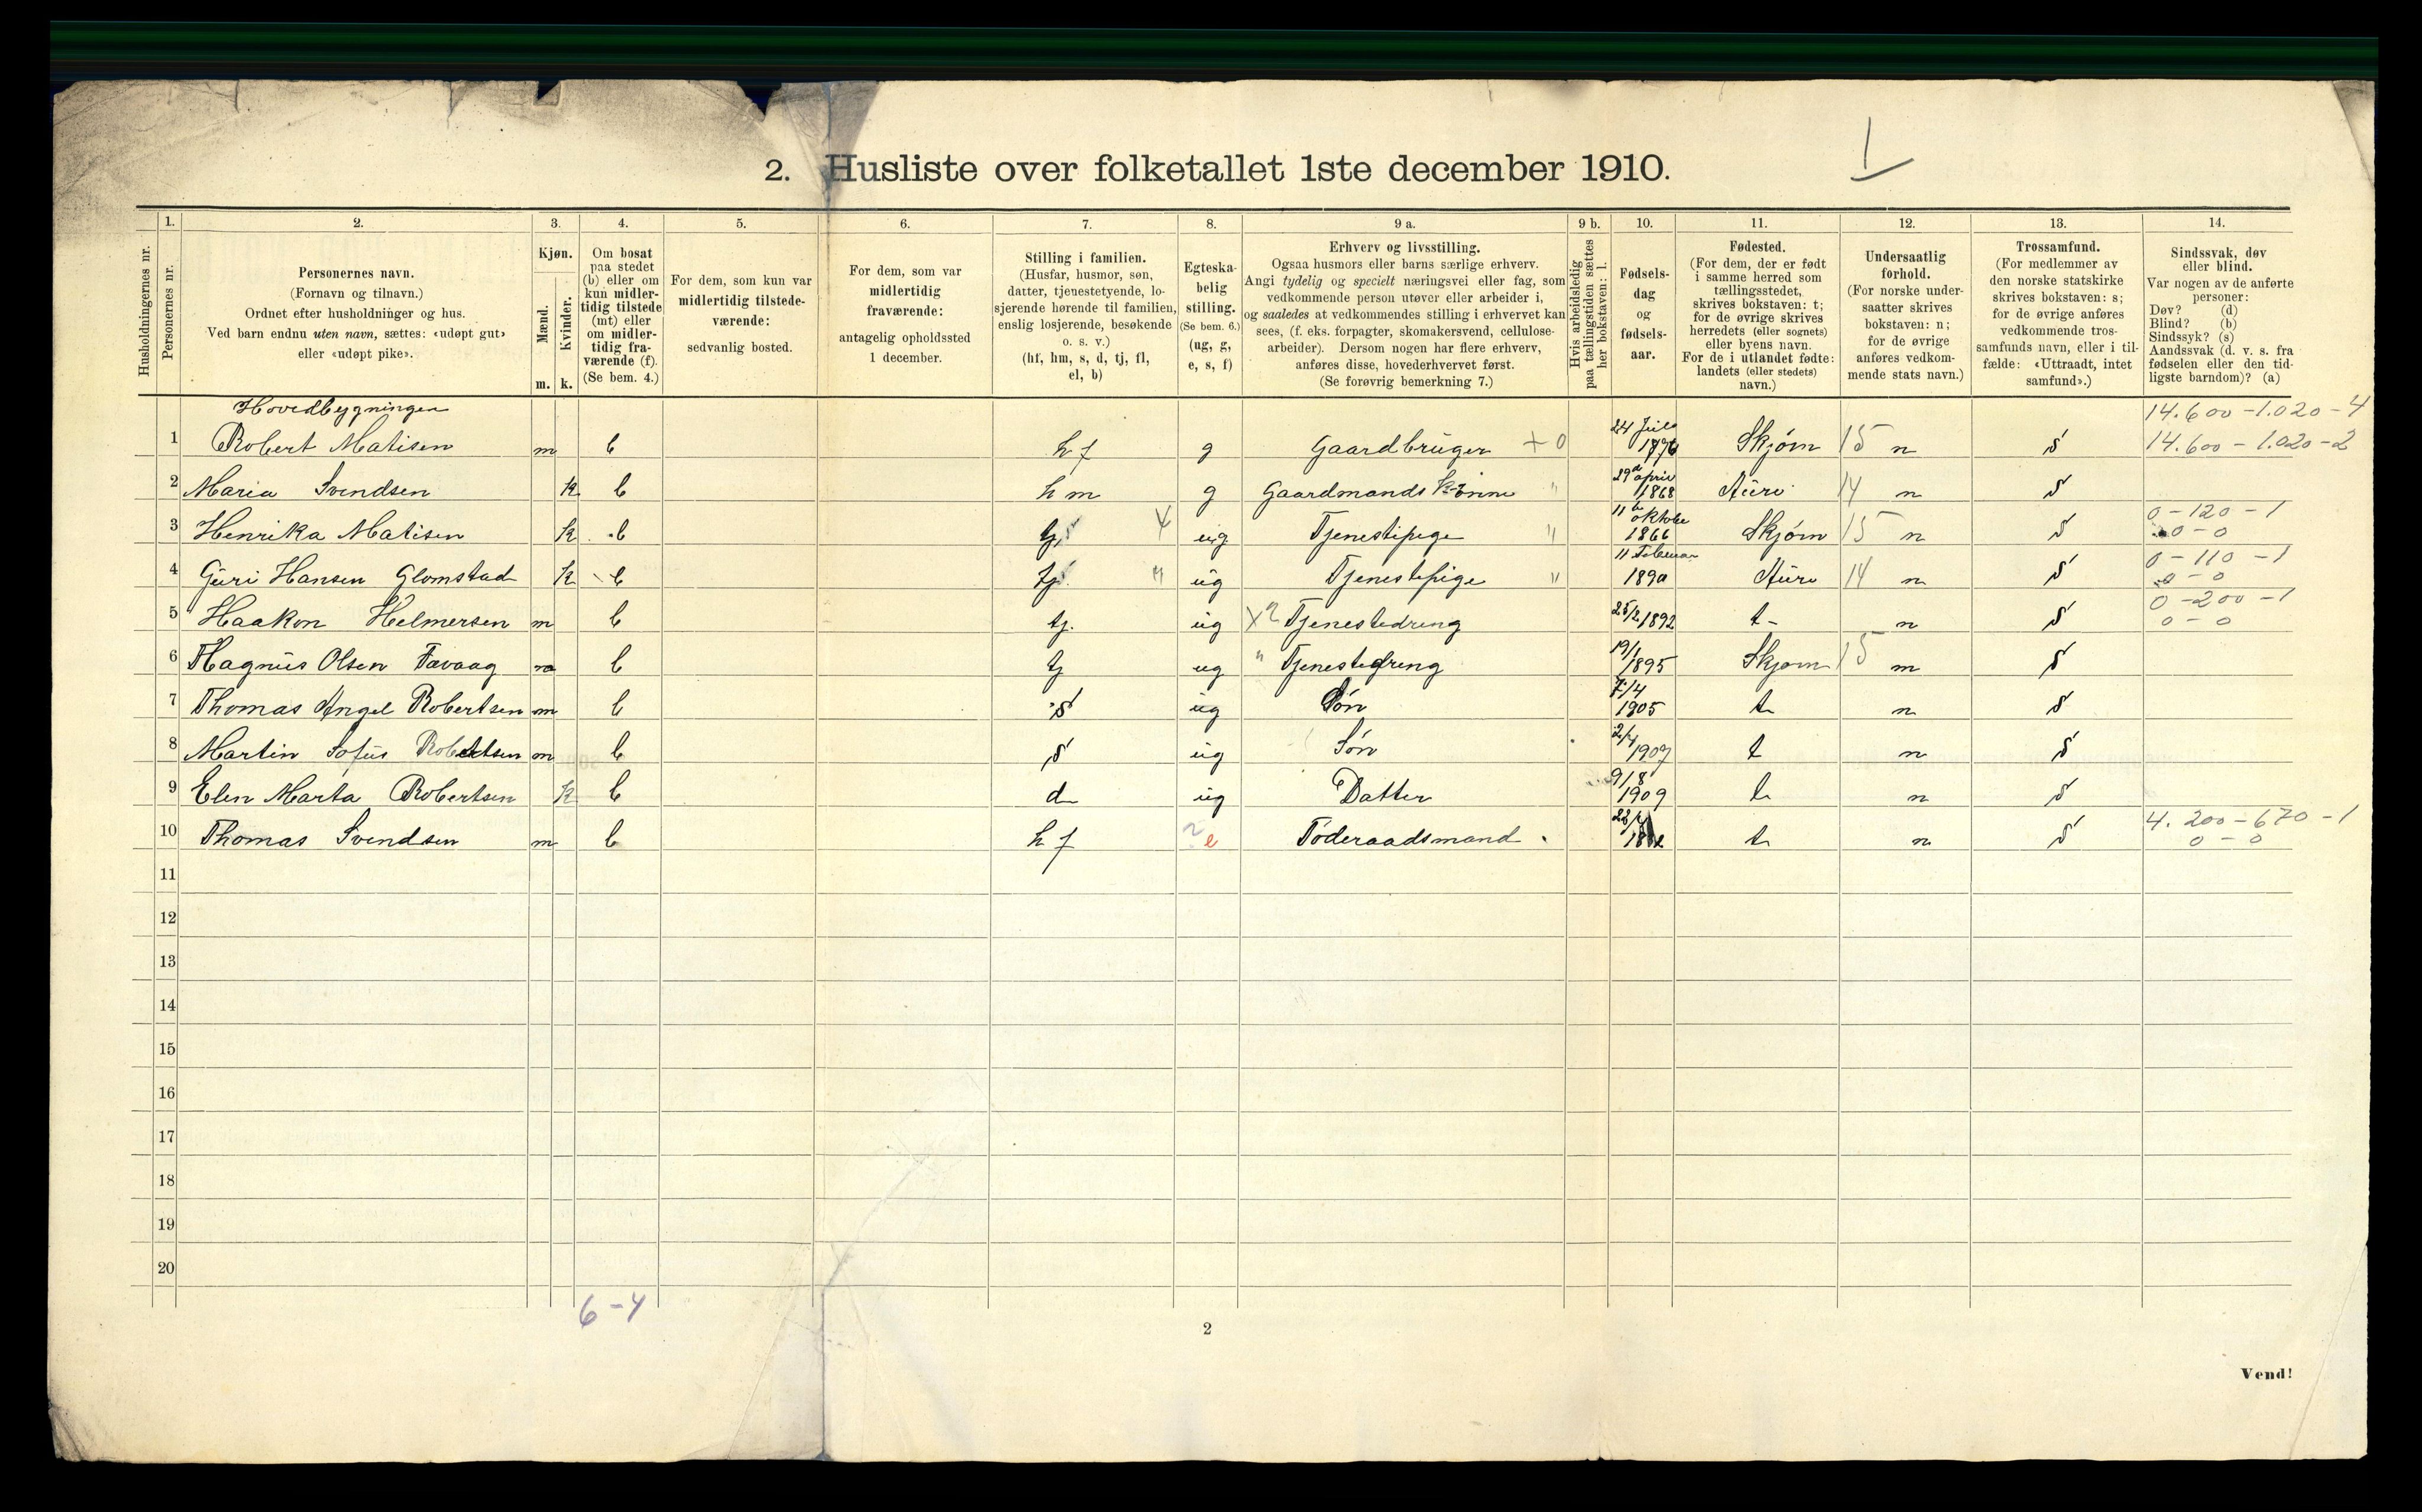 2. Husliste over folketallet 1ste december 1910.
1
Husholdningernes nr.
1. Personernes nr.
2. Personernes navn.
(Fornavn og tilnavn.)
Ordnet efter husholdninger og hus.
Ved barn endnu uten navn, sættes: «udøpt gut»
eller «udøpt pike».
3. Kjøn.
Mænd. m.
Kvinder. k.
4. Om bosat
paa stedet
(b) eller om
kun midler-
tidig tilstede
(mt) eller
om midler-
tidig fra-
værende (f).
(Se bem. 4.)
5. For dem, som kun var
midlertidig tilstede-
værende:
sedvanlig bosted.
6. For dem, som var
midlertidig
fraværende:
antagelig opholdssted
1 december.
7. Stilling i familien.
(Husfar, husmor, søn,
datter, tjenestetyende, lo-
sjerende hørende til familien,
enslig losjerende, besøkende
o. s. v.)
(hf, hm, s, d, tj, fl,
el, b)
8. Egteska-
belig
stilling.
(Se bem. 6.)
(ug, g,
e, s, f)
9 a. Erhverv og livsstilling.
Ogsaa husmors eller barns særlige erhverv.
Angi tydelig og specielt næringsvei eller fag, som
vedkommende person utøver eller arbeider i,
og saaledes at vedkommendes stilling i erhvervet kan
sees, (f. eks. forpagter, skomakersvend, cellulose-
arbeider). Dersom nogen har flere erhverv,
anføres disse, hovederhvervet først.
(Se forøvrig bemerkning 7.)
9 b. Hvis arbeidsledig
paa tællingstiden sættes
her bokstaven: l.
10. Fødsels-
dag
og
fødsels-
aar.
11. Fødested.
(For dem, der er født
i samme herred som
tællingsstedet,
skrives bokstaven: t;
for de øvrige skrives
herredets (eller sognets)
eller byens navn.
For de i utlandet fødte:
landets (eller stedets)
navn.)
12. Undersaatlig
forhold.
(For norske under-
saatter skrives
bokstaven: n;
for de øvrige
anføres vedkom-
mende stats navn.)
13. Trossamfund.
(For medlemmer av
den norske statskirke
skrives bokstaven: s;
for de øvrige anføres
vedkommende tros-
samfunds navn, eller i til-
fælde: «Uttraadt, intet
samfund».)
14. Sindssvak, døv
eller blind.
Var nogen av de anførte
personer:
Døv? (d)
Blind? (b)
Sindssyk? (s)
Aandssvak (d. v. s. fra
fødselen eller den tid-
ligste barndom)? (a)
Hovedbygningen 14.600-1.020-4
1 Robert Matisen m b hf g Gaardbruger + 0 24 Juli 1876 Skjørn 15 n s 14.600-1.020-2
2 Maria Svendsen k b hm g Gaardmands Kone " 29 april 1868 Aure 14 n s
3 Henrika Matisen k b tj ug Tjenestepige " 11 oktobe 1866 Skjørn 15 n s 0-120-1 0-0
4 Guri Hansen Glomstad k b tj " ug Tjenestepige " 11 Februar 1890 Aure 14 n s 0-110-1 0-0
5 Haakon Helmersen m b tj. ug x2 Tjenestedreng 25/2 1892 t- n s 0-200-1 0-0
6 Magnus Olsen Tavaag m b tj ug " Tjenestedreng 19/1 1895 Skjørn 15 n s
7 Thomas Angel Robertsen m b s ug Søn 7/4 1905 t n s
8 Martin Sofus Robertsen m b s ug Søn 2/4 1907 t n s
9 Elen Marta Robertsen k b d ug Datter 9/8 1909 t n s
10 Thomas Svendsen m b hf e Föderaadsmand t n s 4.200-670-1 0-0
11
12
13
14
15
16
17
18
19
20
6-4
2
Vend!